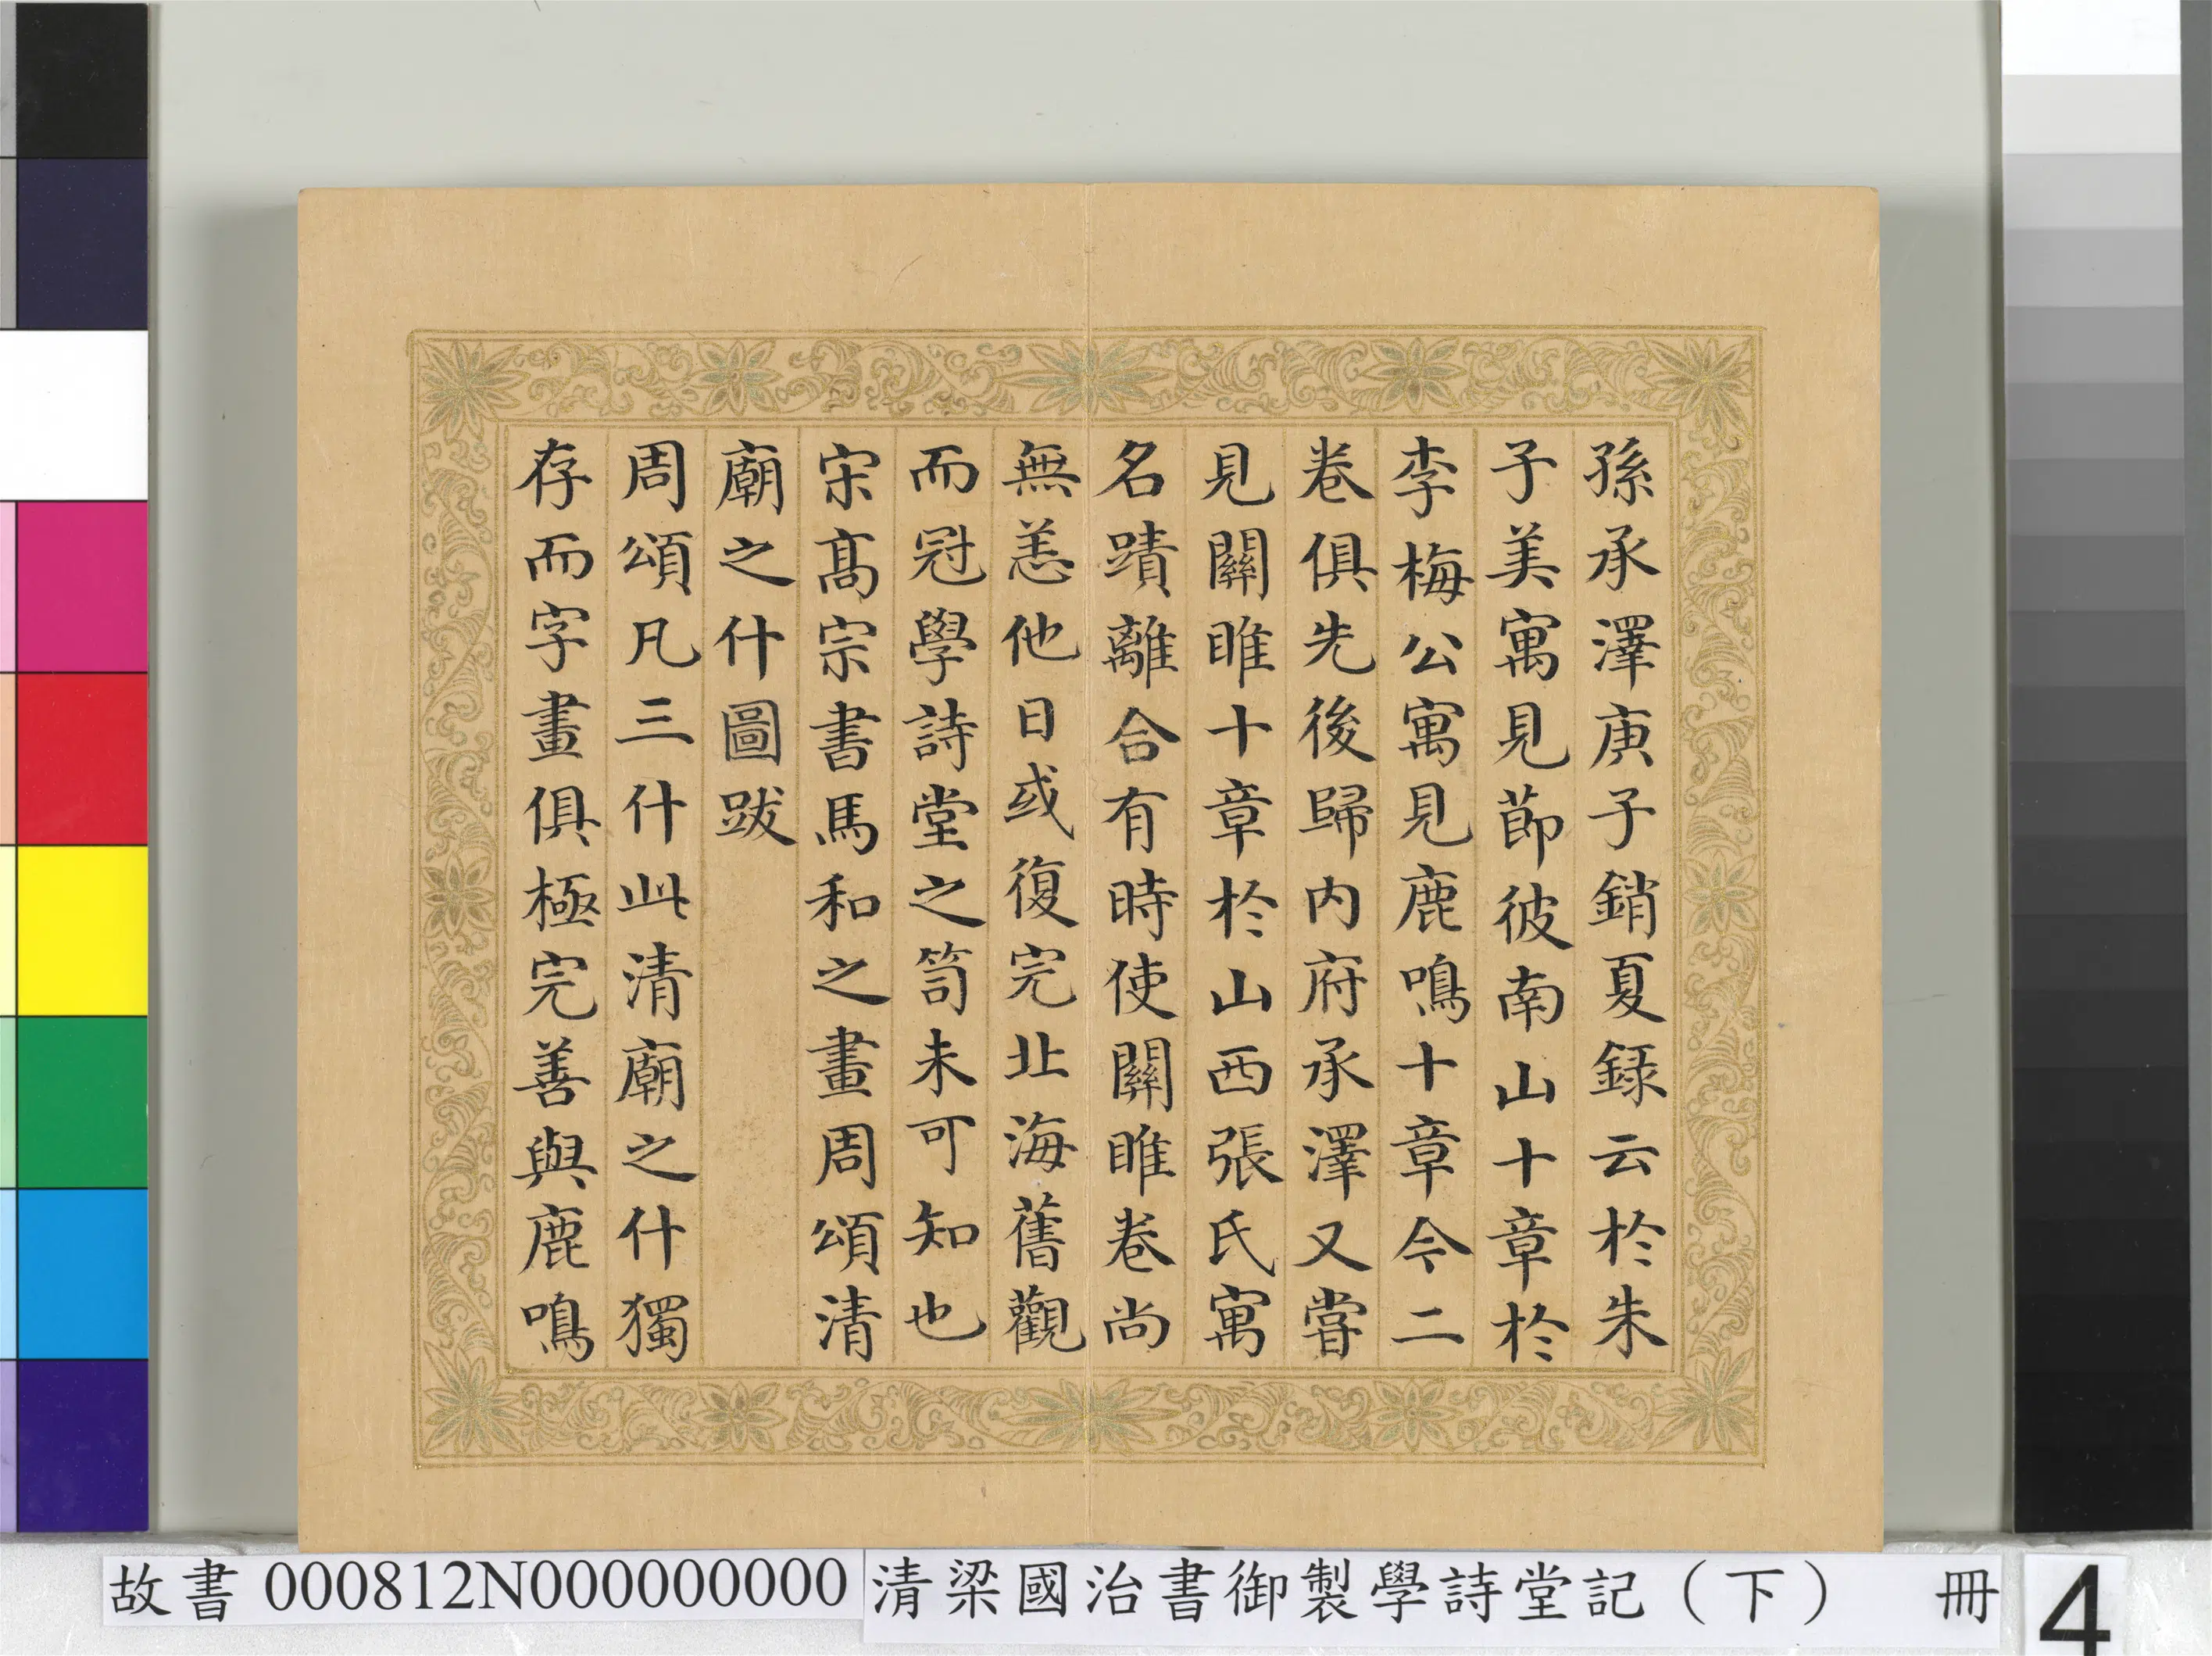 孫承澤庚子銷夏録云於朱
子美寓見節彼南山十章於
李梅公寓見鹿鳴十章今二
卷俱先後歸内府承澤又嘗
見關雎十章於山西張氏寓
名蹟離合有時使關雎卷尚
無恙他日或復完北海舊觀
而冠學詩堂之笥未可知也
宋髙宗書馬和之畫周頌清
廟之什圖跋
周頌凡三什此清廟之什獨
存而字畫俱極完善與鹿鳴
故書 000812N000000000 清梁國治書御製學詩堂記（下） 冊 4